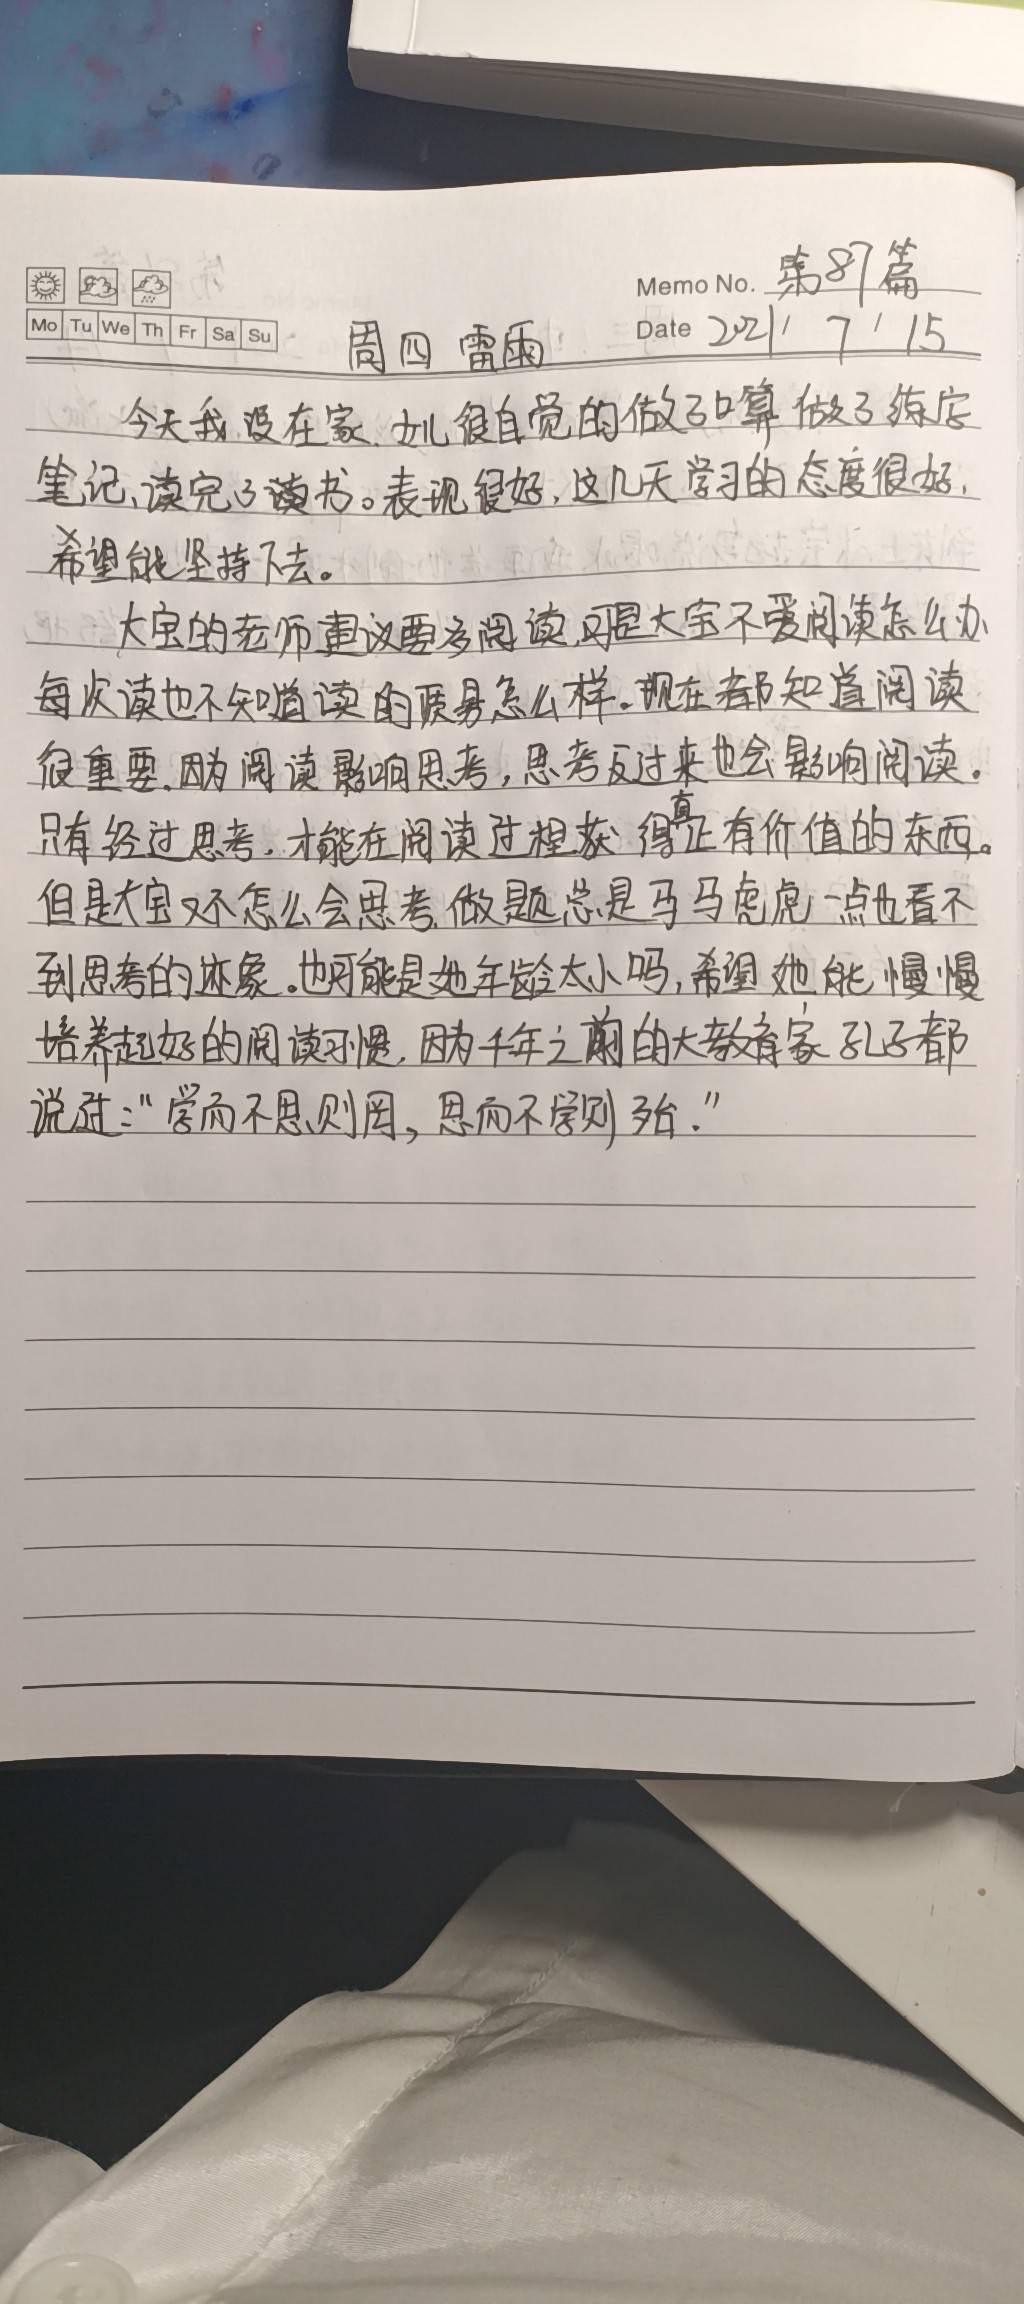 Memo No. 第87篇
Mo Tu We Th Fr Sa Su
Date 2021 / 7 / 15
周四 雷雨
今天我没在家,女儿很自觉的做了口算 做了练字
笔记,读完了读书。表现很好,这几天学习的态度很好,
希望能坚持下去。
大宝的老师建议要多阅读,可是大宝不爱阅读怎么办
每次读也不知道读的质量怎么样。现在都知道阅读
很重要,因为阅读影响思考,思考反过来也会影响阅读。
只有经过思考,才能在阅读过程获得真正有价值的东西。
但是大宝又不怎么会思考,做题总是马马虎虎一点也看不
到思考的迹象。也可能是她年龄太小吗,希望她能慢慢
培养起好的阅读习惯,因为千年之前的大教育家孔子都
说过:“学而不思则罔,思而不学则殆.”